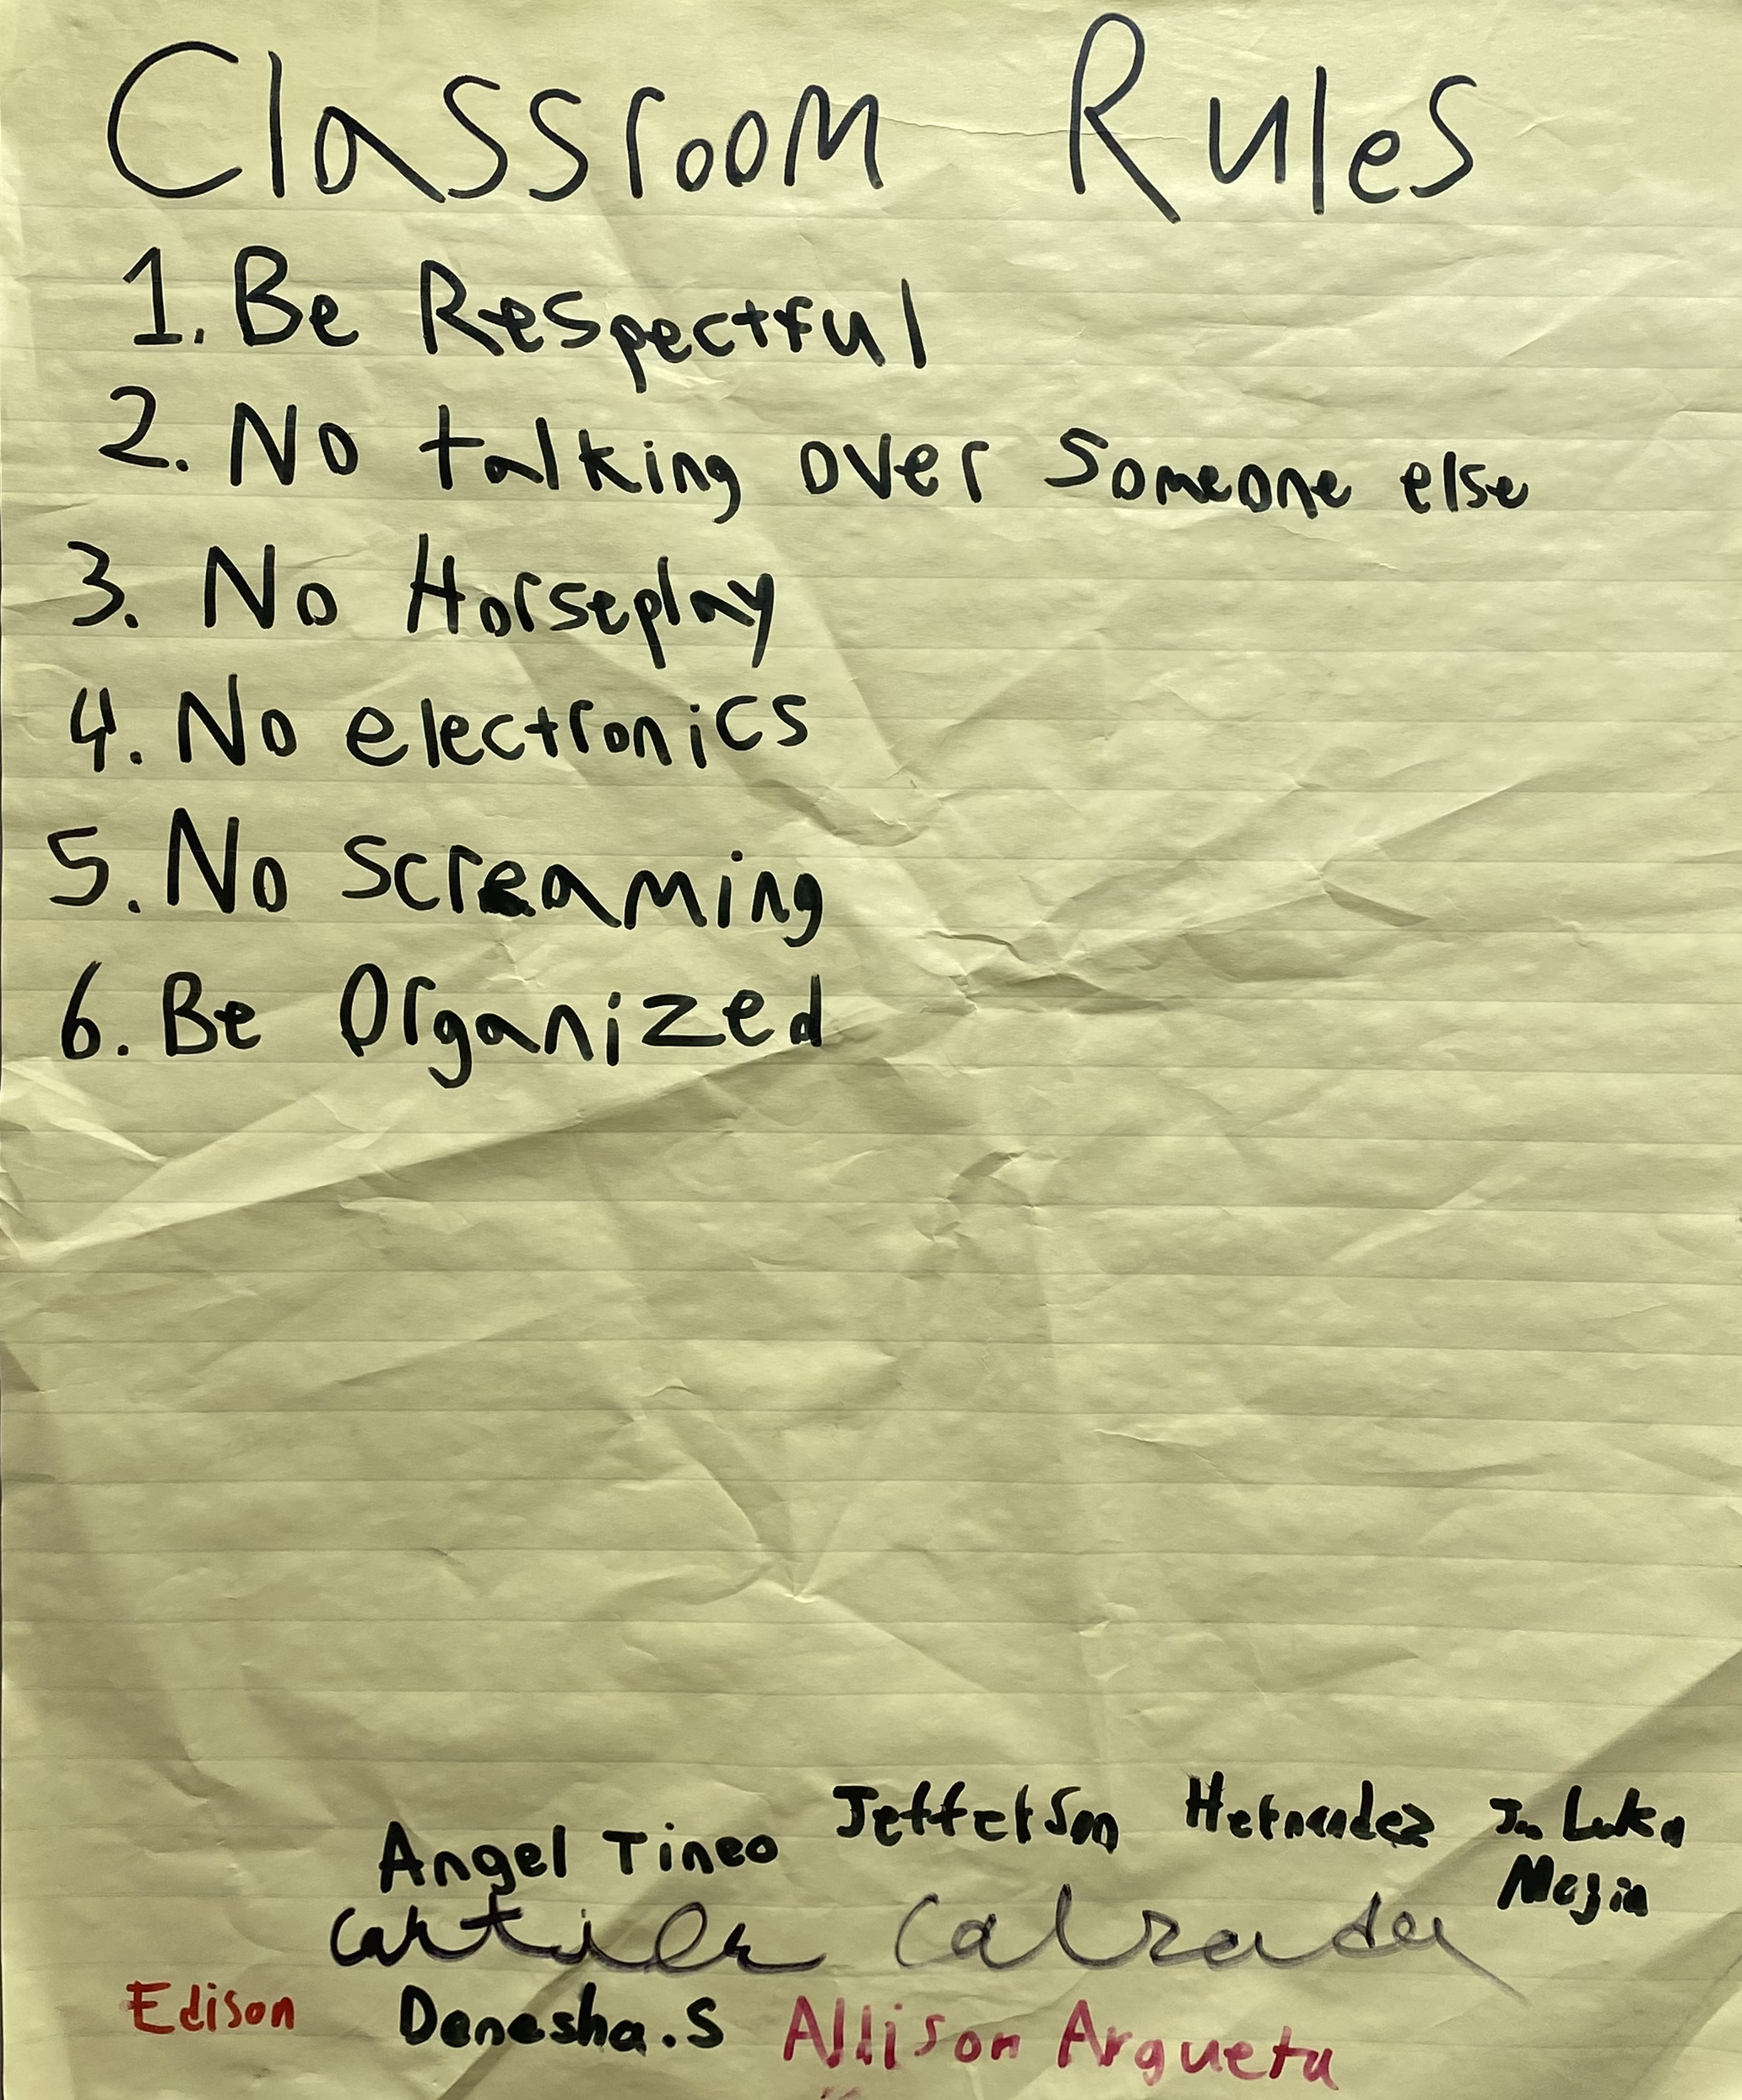 Classroom Rules
1. Be Respectful
2. No talking over Someone else
3. No Horseplay
4. No electronics
5. No screaming
6. Be Organized
Angel Tineo Jefferson Hernandez Luka
Mejia
Edison Denesha.S Allison Argueta